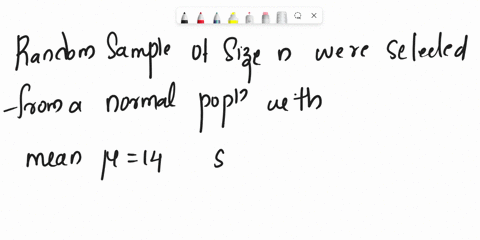 Random Sample of Size n were selected
from a normal popln with
mean μ = 14 S